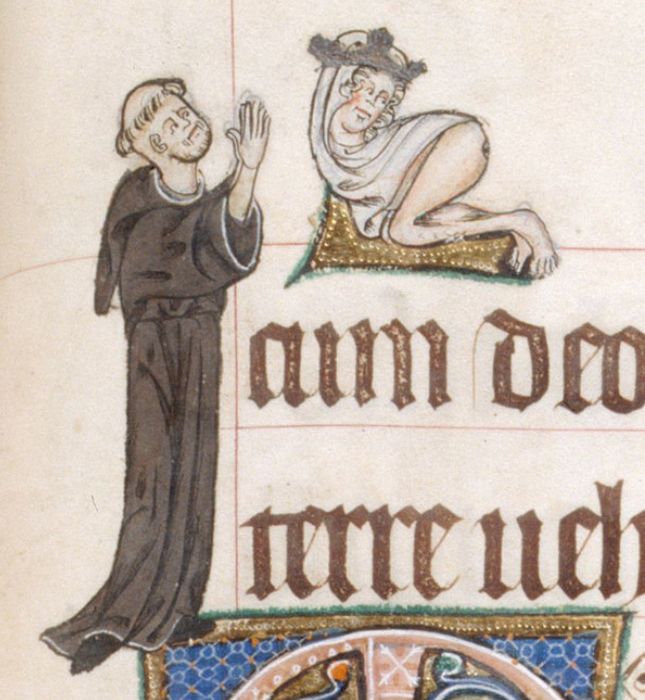 cum deo
terre ueh